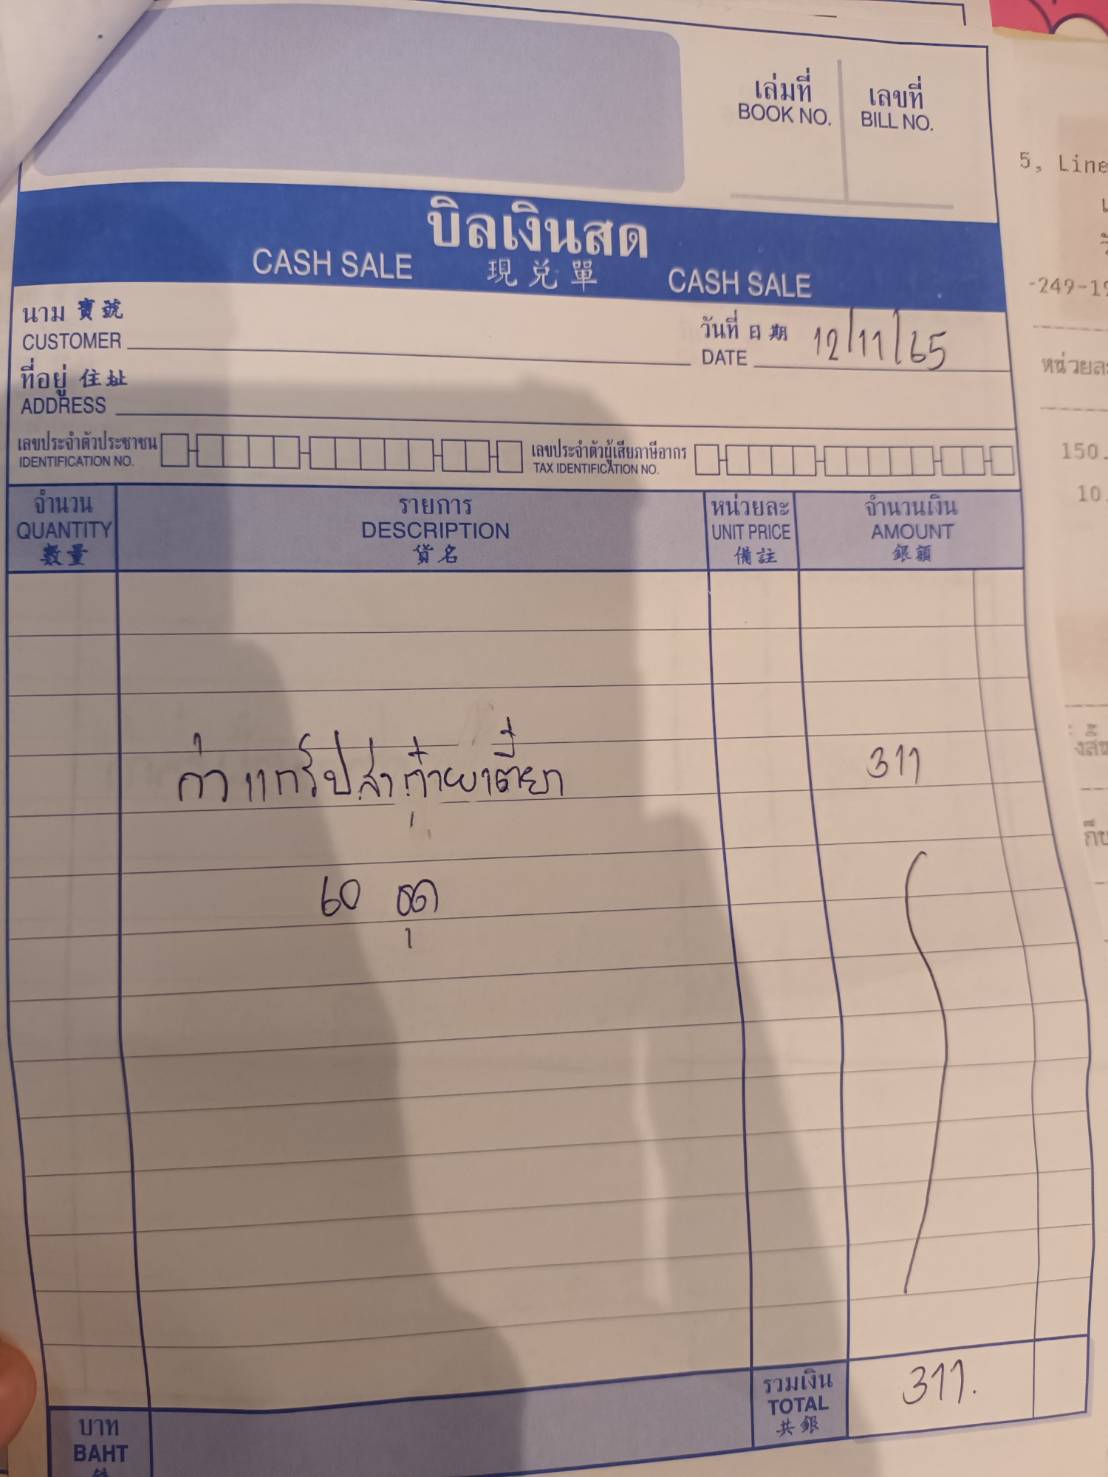 เล่มที่ เลขที่
BOOK NO. BILL NO.
บิลเงินสด
CASH SALE 現兑單 CASH SALE
นาม 寶號
CUSTOMER
วันที่ 日期 12/11/65
DATE
ที่อยู่ 住址
ADDRESS
เลขประจำตัวประชาชน
IDENTIFICATION NO.
เลขประจำตัวผู้เสียภาษีอากร
TAX IDENTIFICATION NO.
จำนวน รายการ หน่วยละ จำนวนเงิน
QUANTITY DESCRIPTION UNIT PRICE AMOUNT
數量 貨名 備註 銀額
311
60
รวมเงิน 311.
TOTAL
共銀
บาท
BAHT
5, Line
-249-19
หน่วยละ
150.
10.